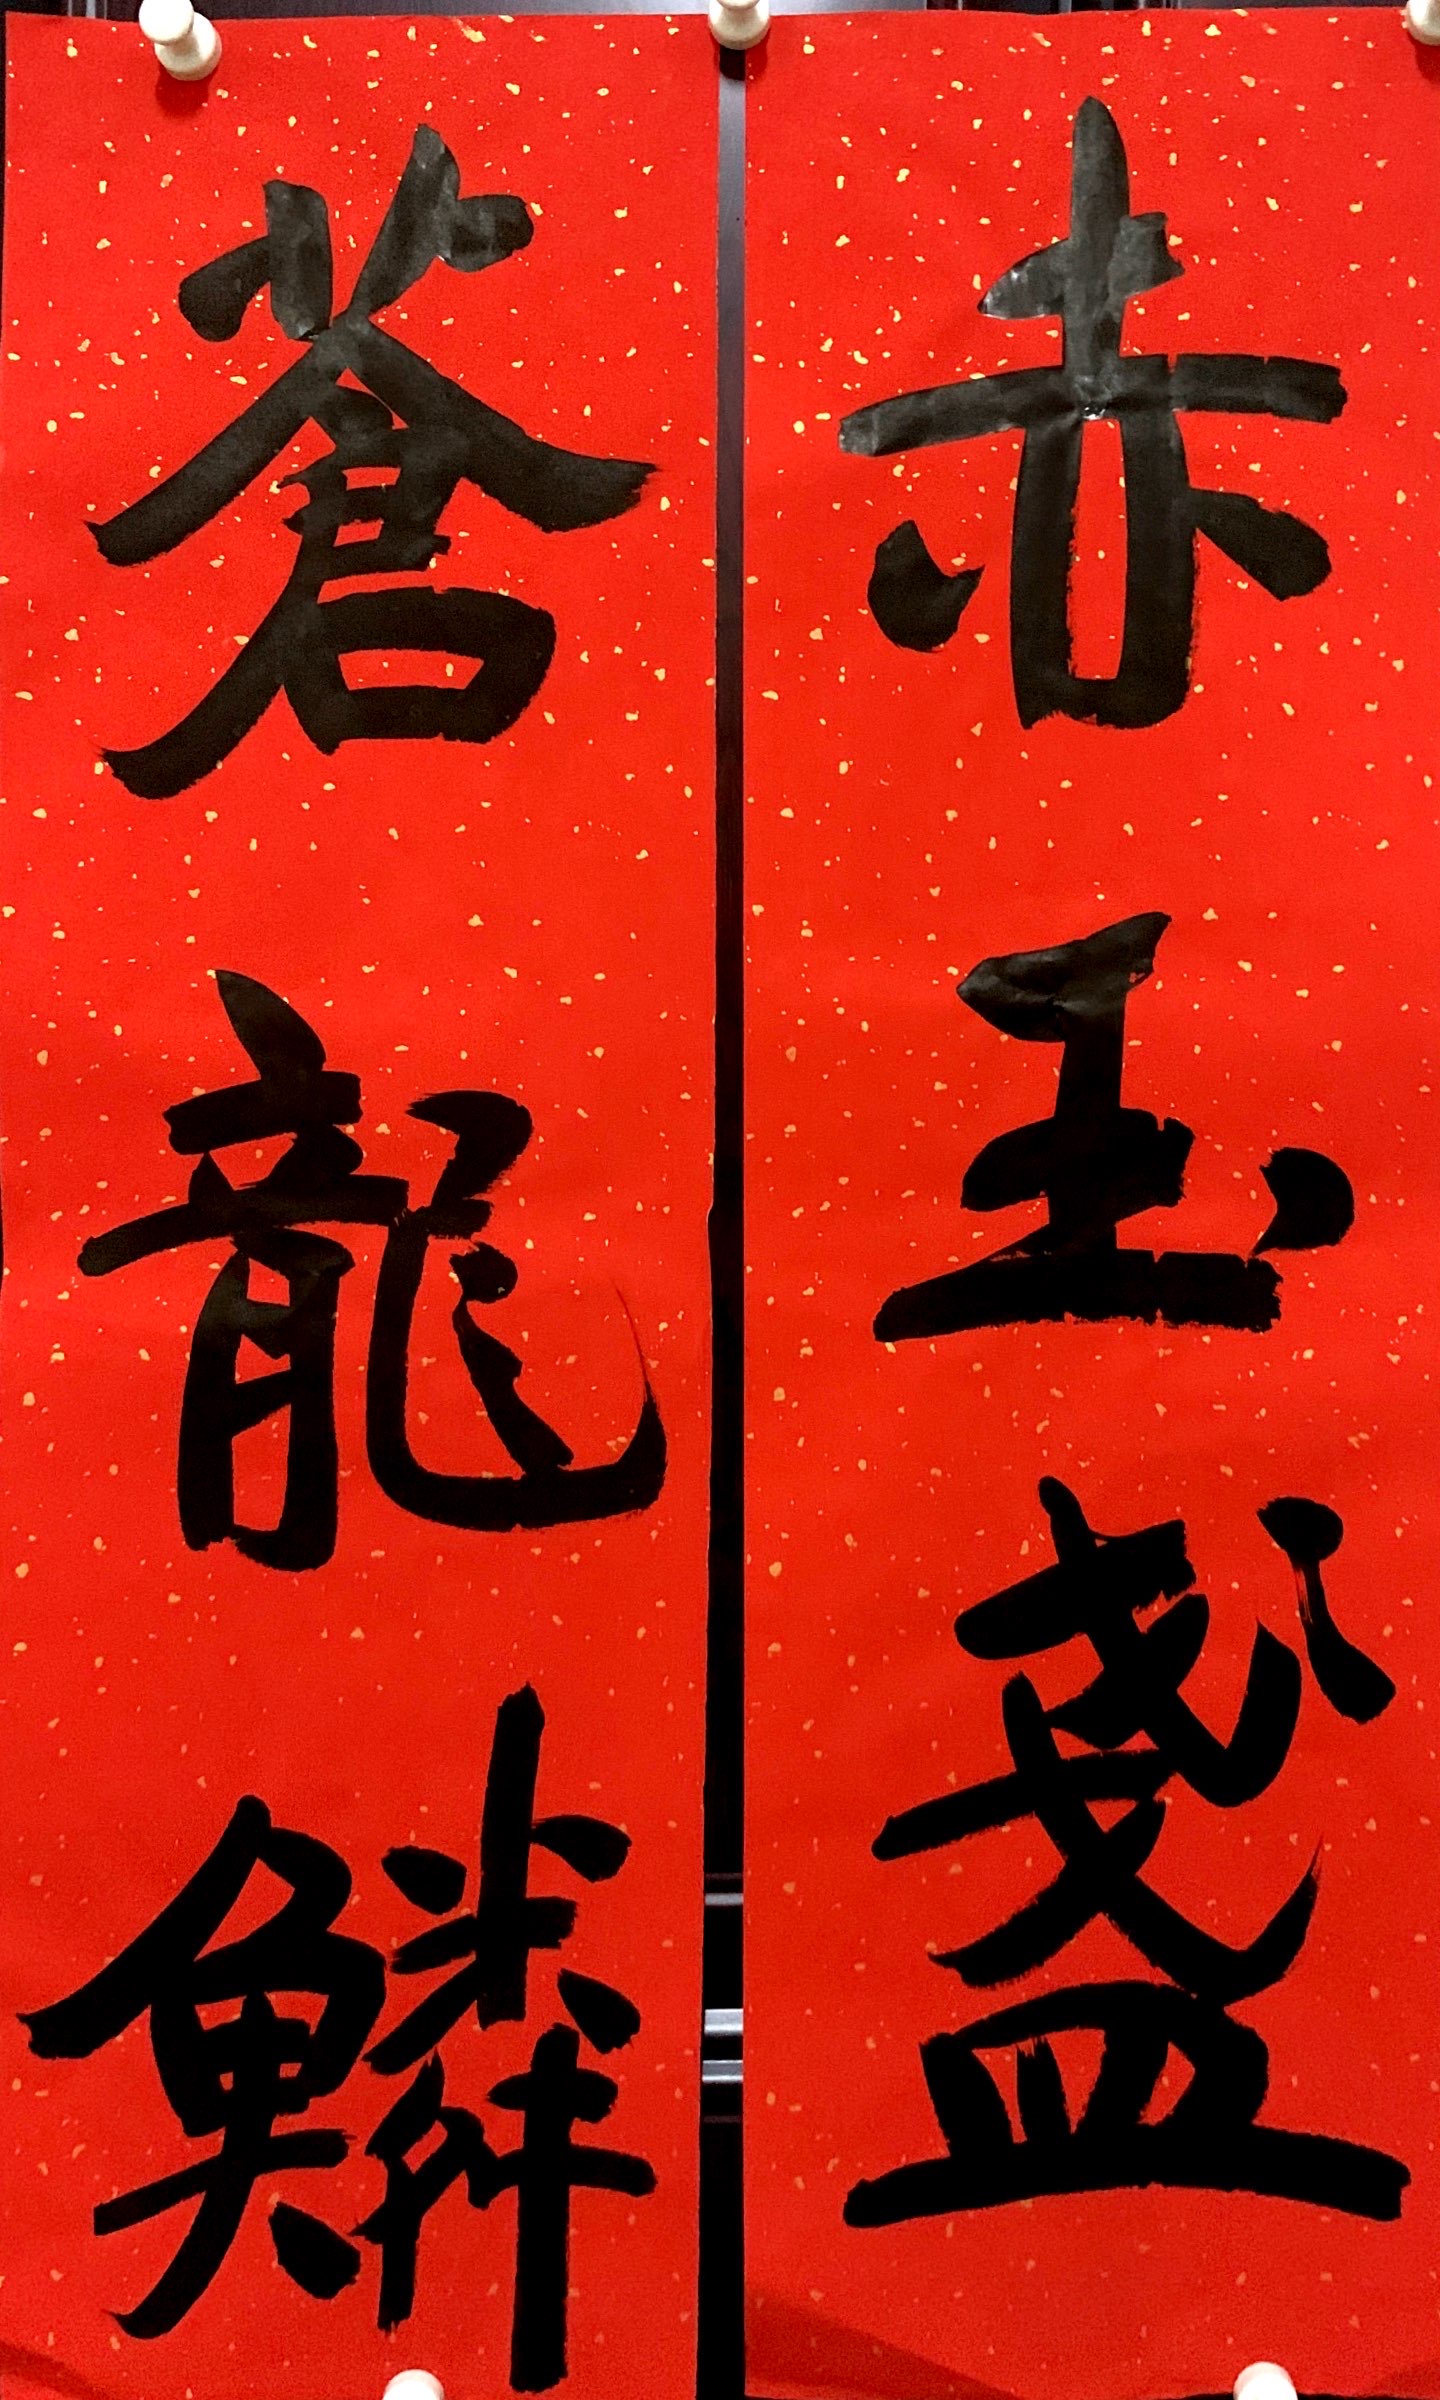 赤玉盞
蒼龍鱗